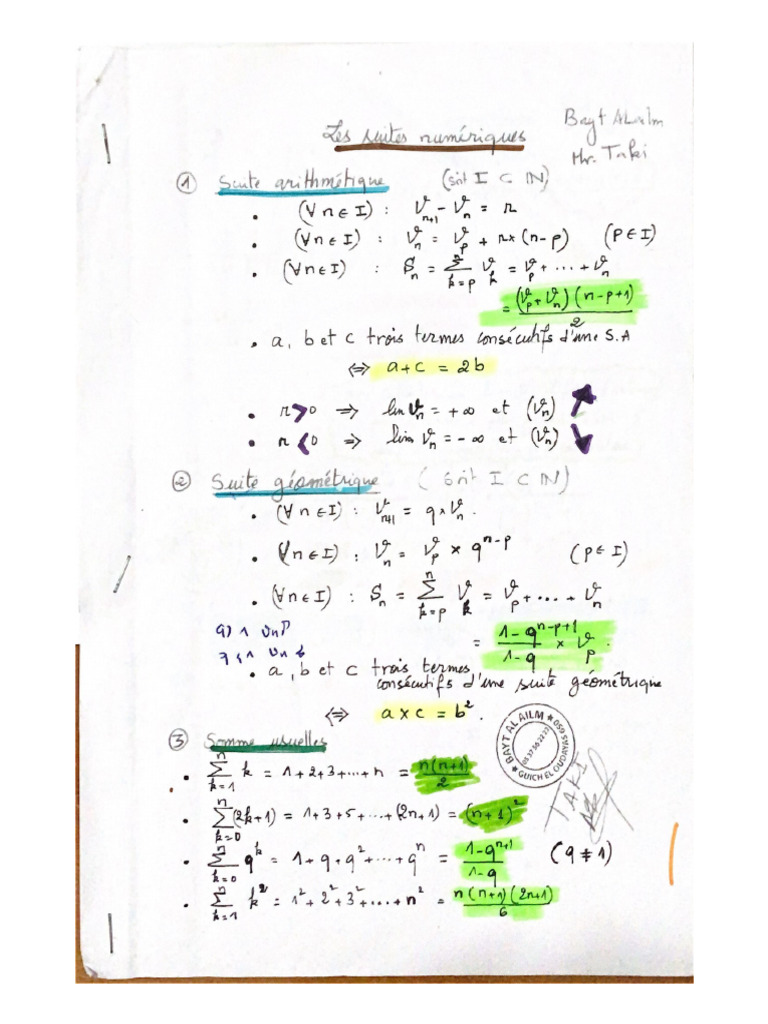 Les suites numériques
Bayt ALailm
Mr. Taki
① Suite arithmétique (soit I ⊂ ℕ)
• (∀n∈I) : Vₙ₊₁ - Vₙ = r
• (∀n∈I) : Vₙ = Vₚ + r×(n-p) (p∈I)
• (∀n∈I) : Sₙ = ∑ₖ₌ₚⁿ Vₖ = Vₚ + ... + Vₙ
= (Vₚ+Vₙ)(n-p+1)/2
• a, b et c trois termes consécutifs d'une S.A
⇔ a+c = 2b
• r > 0 ⇒ lim Vₙ = +∞ et (Vₙ) ↗
• r < 0 ⇒ lim Vₙ = -∞ et (Vₙ) ↘
② Suite géométrique (soit I ⊂ ℕ)
• (∀n∈I) : Vₙ₊₁ = q×Vₙ.
• (∀n∈I) : Vₙ = Vₚ × qⁿ⁻ᵖ (p∈I)
• (∀n∈I) : Sₙ = ∑ₖ₌ₚⁿ Vₖ = Vₚ + ... + Vₙ
= (1-qⁿ⁻ᵖ⁺¹)/(1-q) × Vₚ.
• a, b et c trois termes
consécutifs d'une suite géométrique
⇔ a×c = b².
③ Somme usuelles
• ∑ₖ₌₁ⁿ k = 1+2+3+...+n = n(n+1)/2
• ∑ₖ₌₀ⁿ (2k+1) = 1+3+5+...+(2n+1) = (n+1)²
• ∑ₖ₌₀ⁿ qᵏ = 1+q+q²+...+qⁿ = (1-qⁿ⁺¹)/(1-q) (q≠1)
• ∑ₖ₌₁ⁿ k² = 1²+2²+3²+...+n² = n(n+1)(2n+1)/6
BAYT AL AILM
GUICH EL OUDAYAS
TAKI